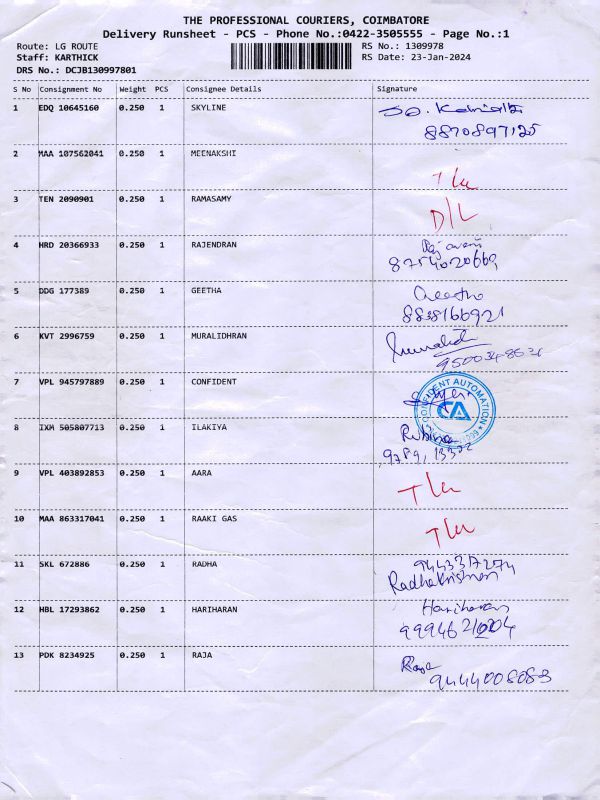 THE PROFESSIONAL COURIERS, COIMBATORE
Delivery Runsheet - PCS - Phone No.:0422-3505555 - Page No.:1
Route: LG ROUTE RS No.: 1309978
Staff: KARTHICK RS Date: 23-Jan-2024
DRS No.: DCJB130997801
S No Consignment No Weight PCS Consignee Details Signature
1 EDQ 10645160 0.250 1 SKYLINE
8870897125
2 MAA 107562041 0.250 1 MEENAKSHI
3 TEN 2090901 0.250 1 RAMASAMY D/L
4 HRD 20366933 0.250 1 RAJENDRAN
8754020669
5 DDG 177389 0.250 1 GEETHA Geetha
8838166921
6 KVT 2996759 0.250 1 MURALIDHRAN
7 VPL 945797889 0.250 1 CONFIDENT
CONFIDENT AUTOMATION
CA
8 IXM 505807713 0.250 1 ILAKIYA
9 VPL 403892853 0.250 1 AARA
10 MAA 863317041 0.250 1 RAAKI GAS
11 SKL 672886 0.250 1 RADHA
Radhakrishnan
12 HBL 17293862 0.250 1 HARIHARAN Hariharan
13 PDK 8234925 0.250 1 RAJA Raja
9444008083